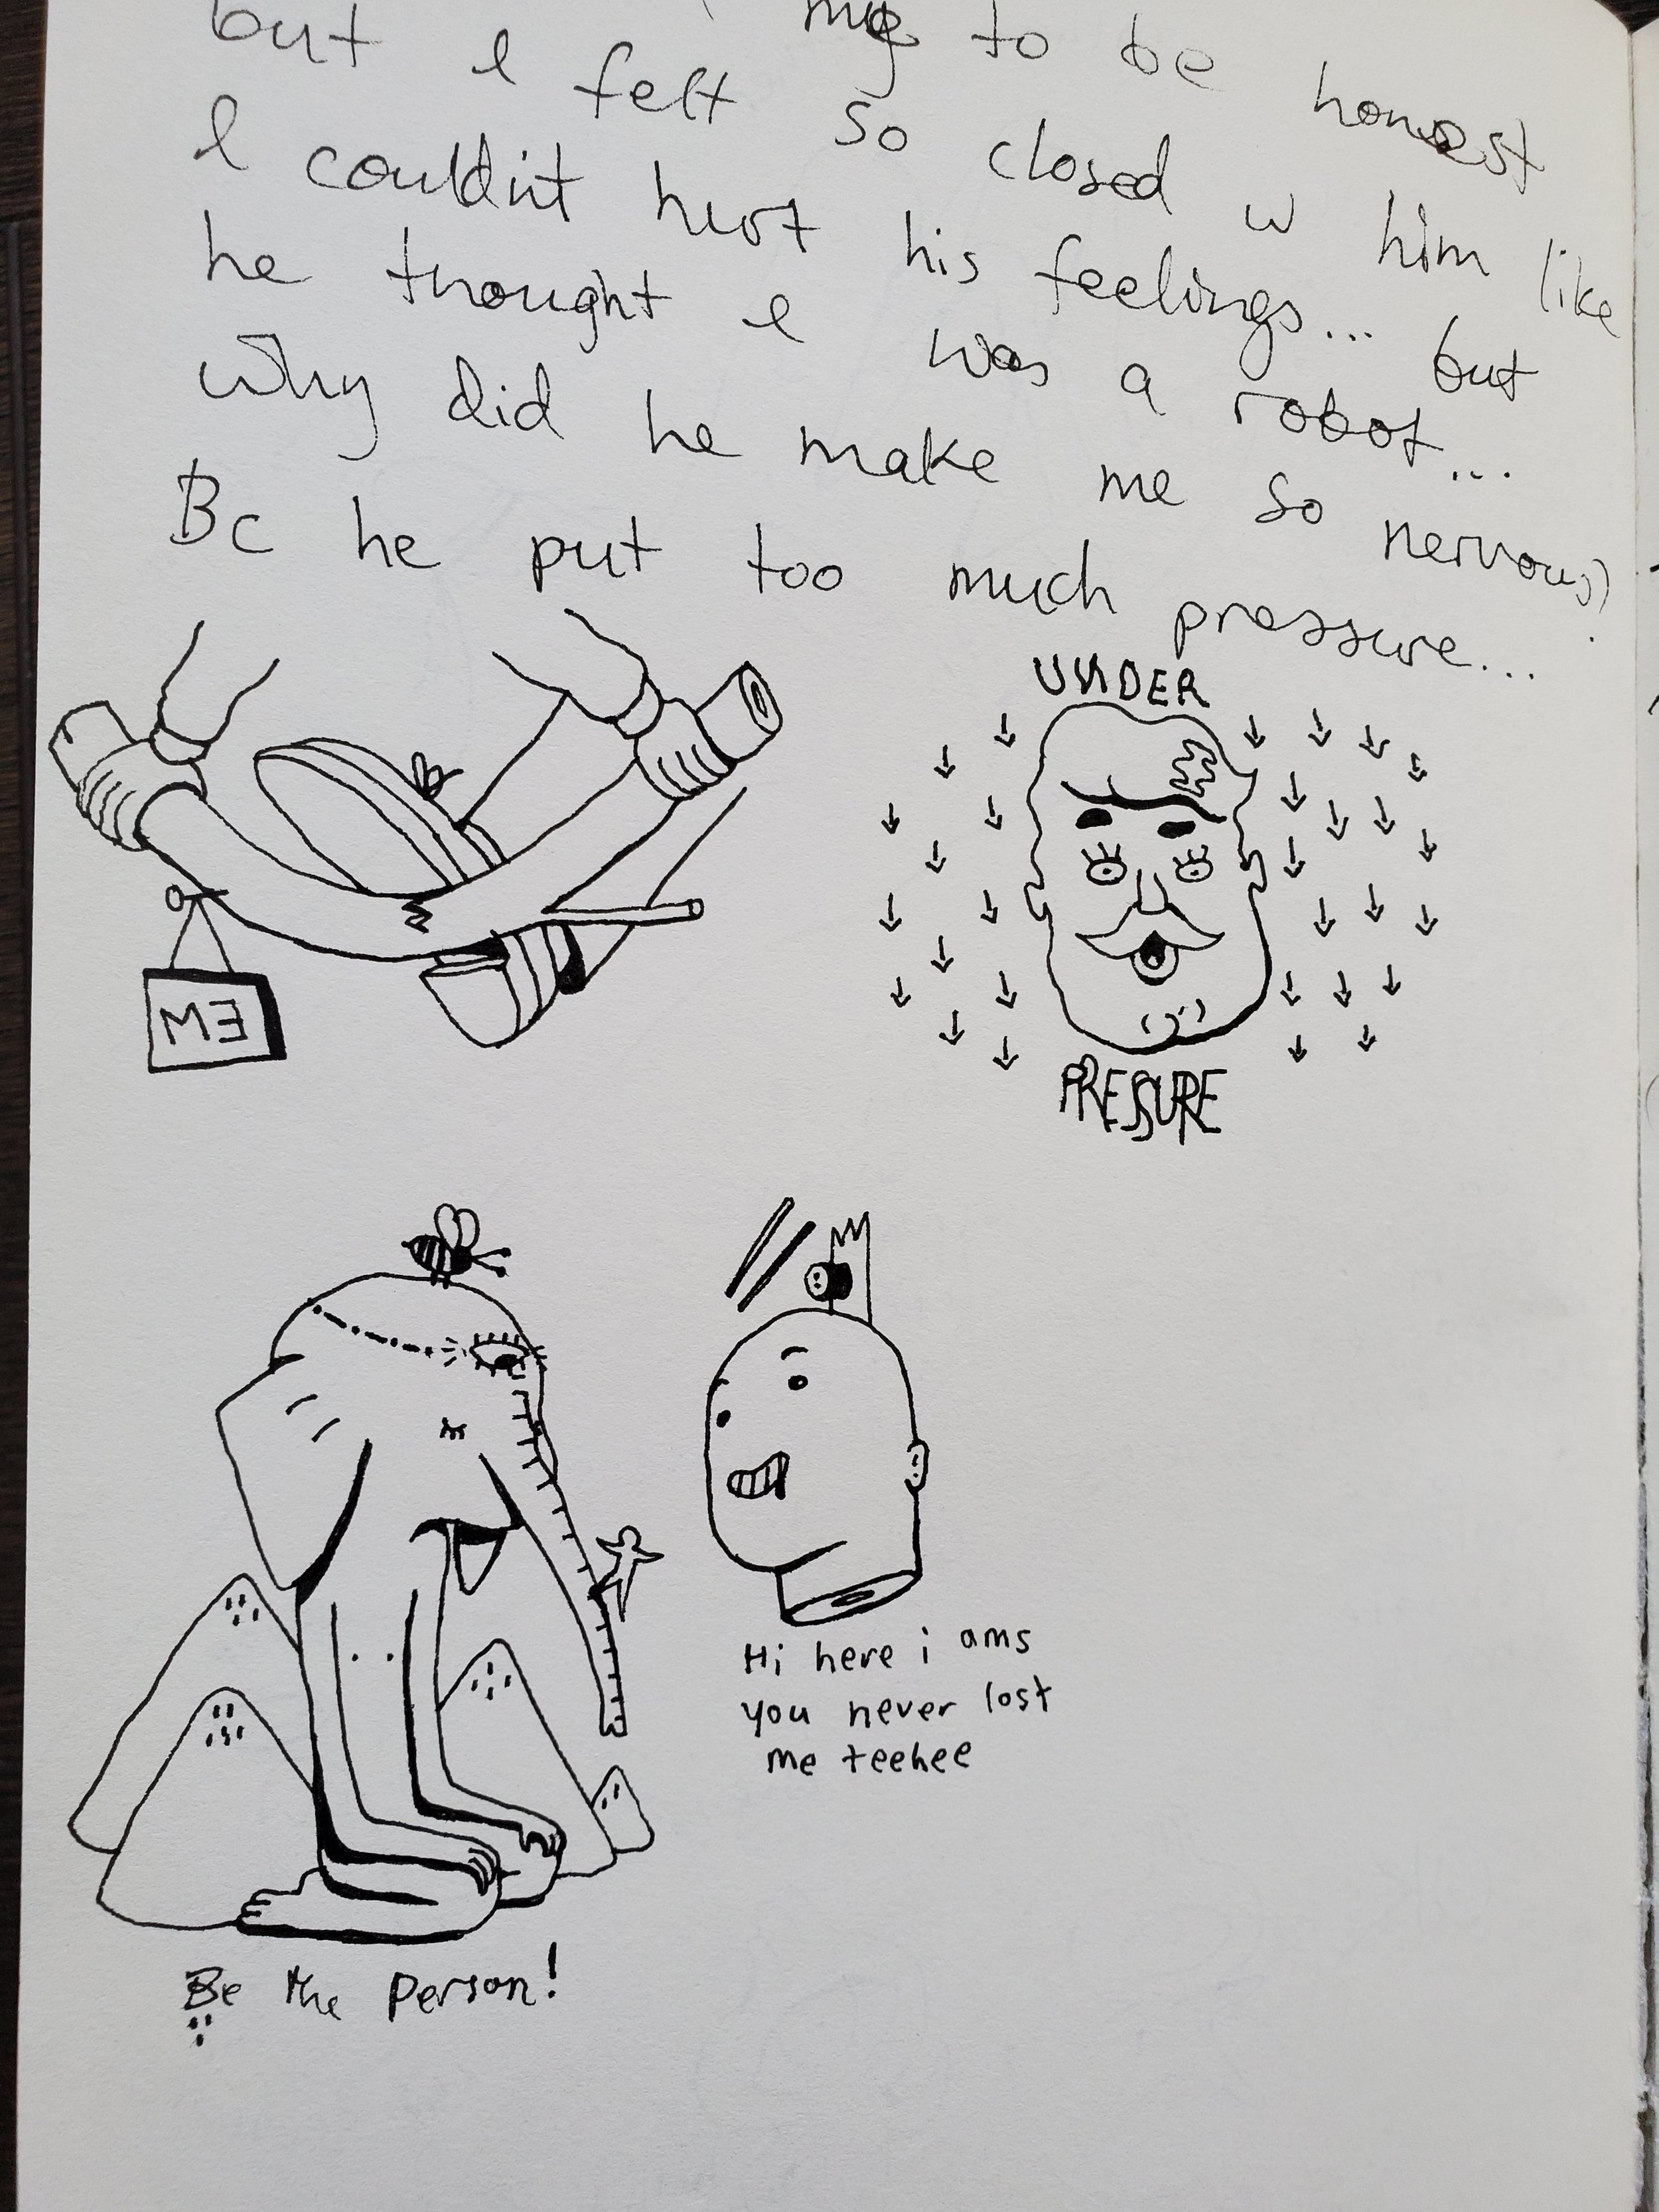 to be honest
but I felt so closed w him like
I couldn't hurt his feelings... but
he thought I was a robot...
why did he make me so nervous?
Bc he put too much pressure...
UNDER
PRESSURE
ME
Hi here i ams
you never lost
me teehee
Be the person!